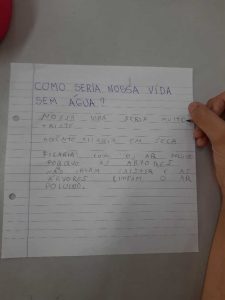 COMO SERIA NOSSA VIDA
SEM ÁGUA?
NOSSA VIDA SERIA MUITO
TRISTE
AGENTE FICARIA EM SECA
FICARIA COM O AR
PORQUE AS ARVORES
NÃO IRIAM E AS
ARVORES LIMPAM O AR
POLUIDO.